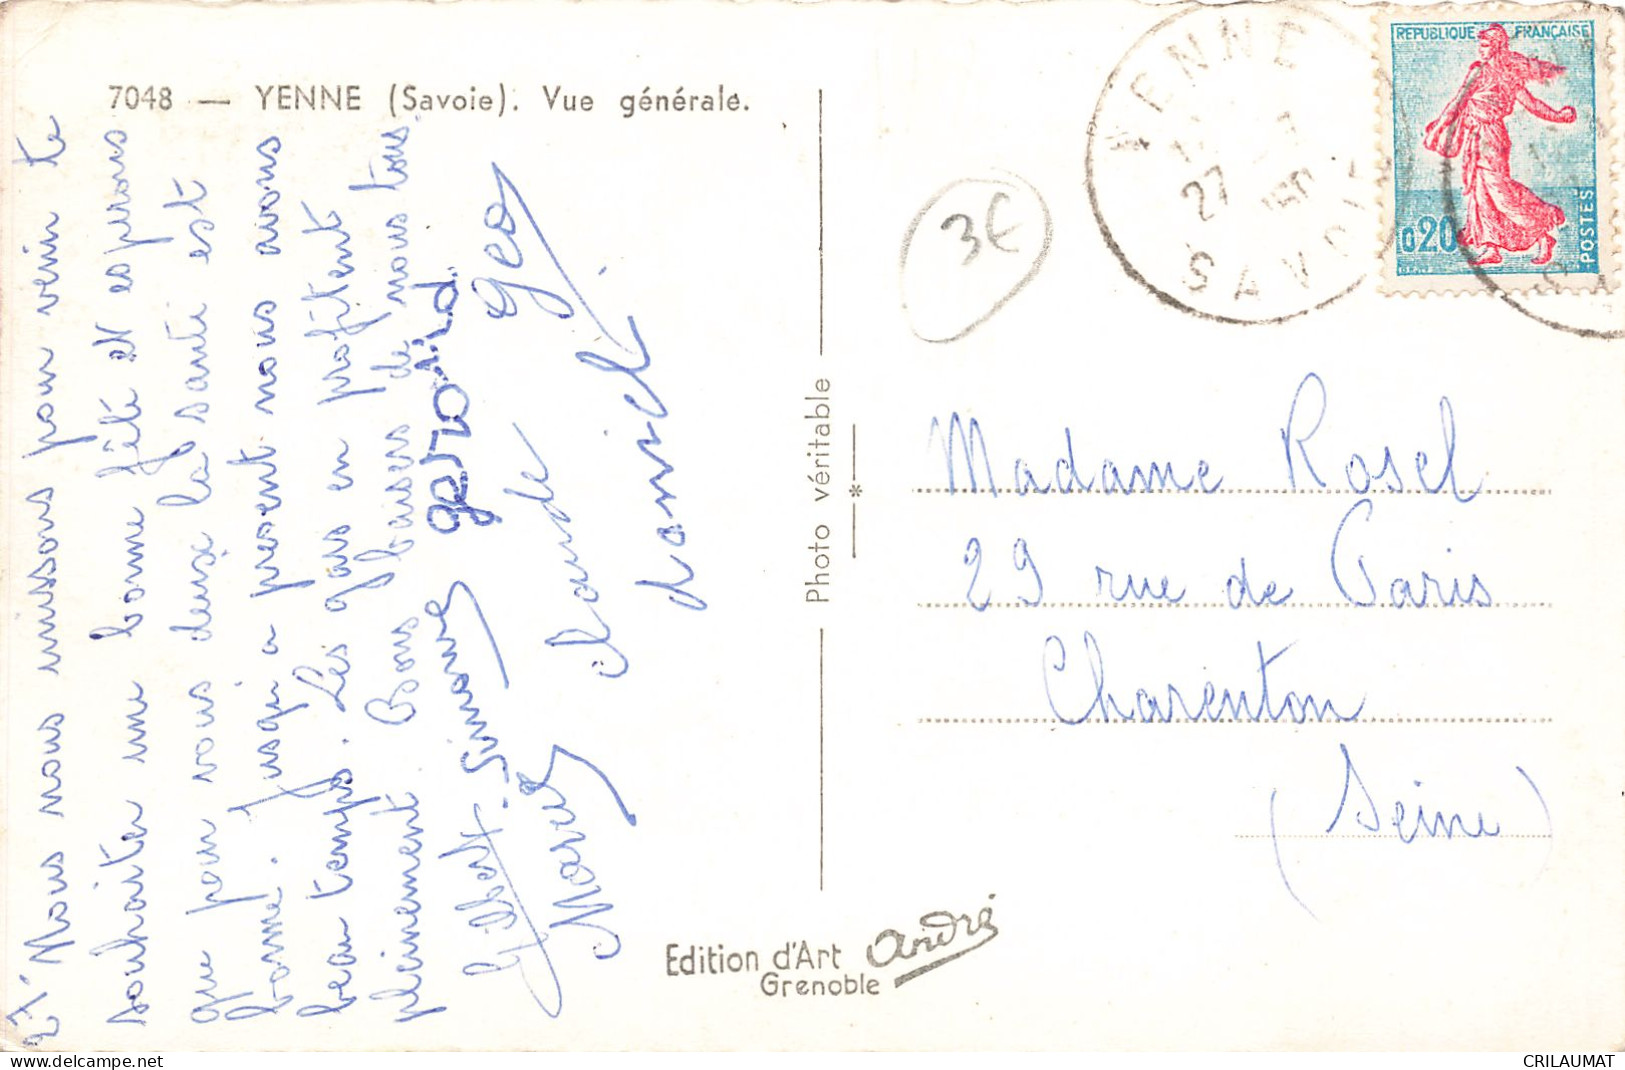 7048 — YENNE (Savoie). Vue générale.
27 Nous nous unissons pour venir te
souhaiter une bonne fête et espérons
que pour vous deux la santé est
bonne. Jusqu'a present nous avons
beau temps. Les gars en profitent
pleinement. Bons baisers de nous tous.
Gilbert - Simone gérard geo
Marcel claude
daniel
Photo véritable
*
Edition d'Art André
Grenoble
YENNE
27
SAVOIE
REPUBLIQUE FRANÇAISE
0,20
POSTES
3€
Madame Rosel
29 rue de Paris
Charenton
(Seine)
https://www.delcampe.net
CRILAUMAT